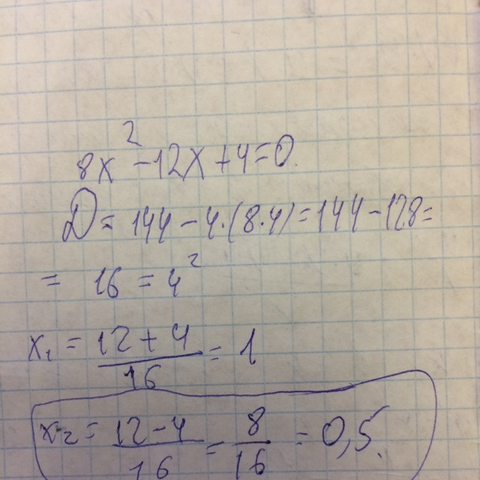 8x² - 12x + 4 = 0.
D = 144 - 4·(8·4) = 144 - 128 =
= 16 = 4²
x₁ = (12 + 4)/16 = 1
x₂ = (12 - 4)/16 = 8/16 = 0,5.